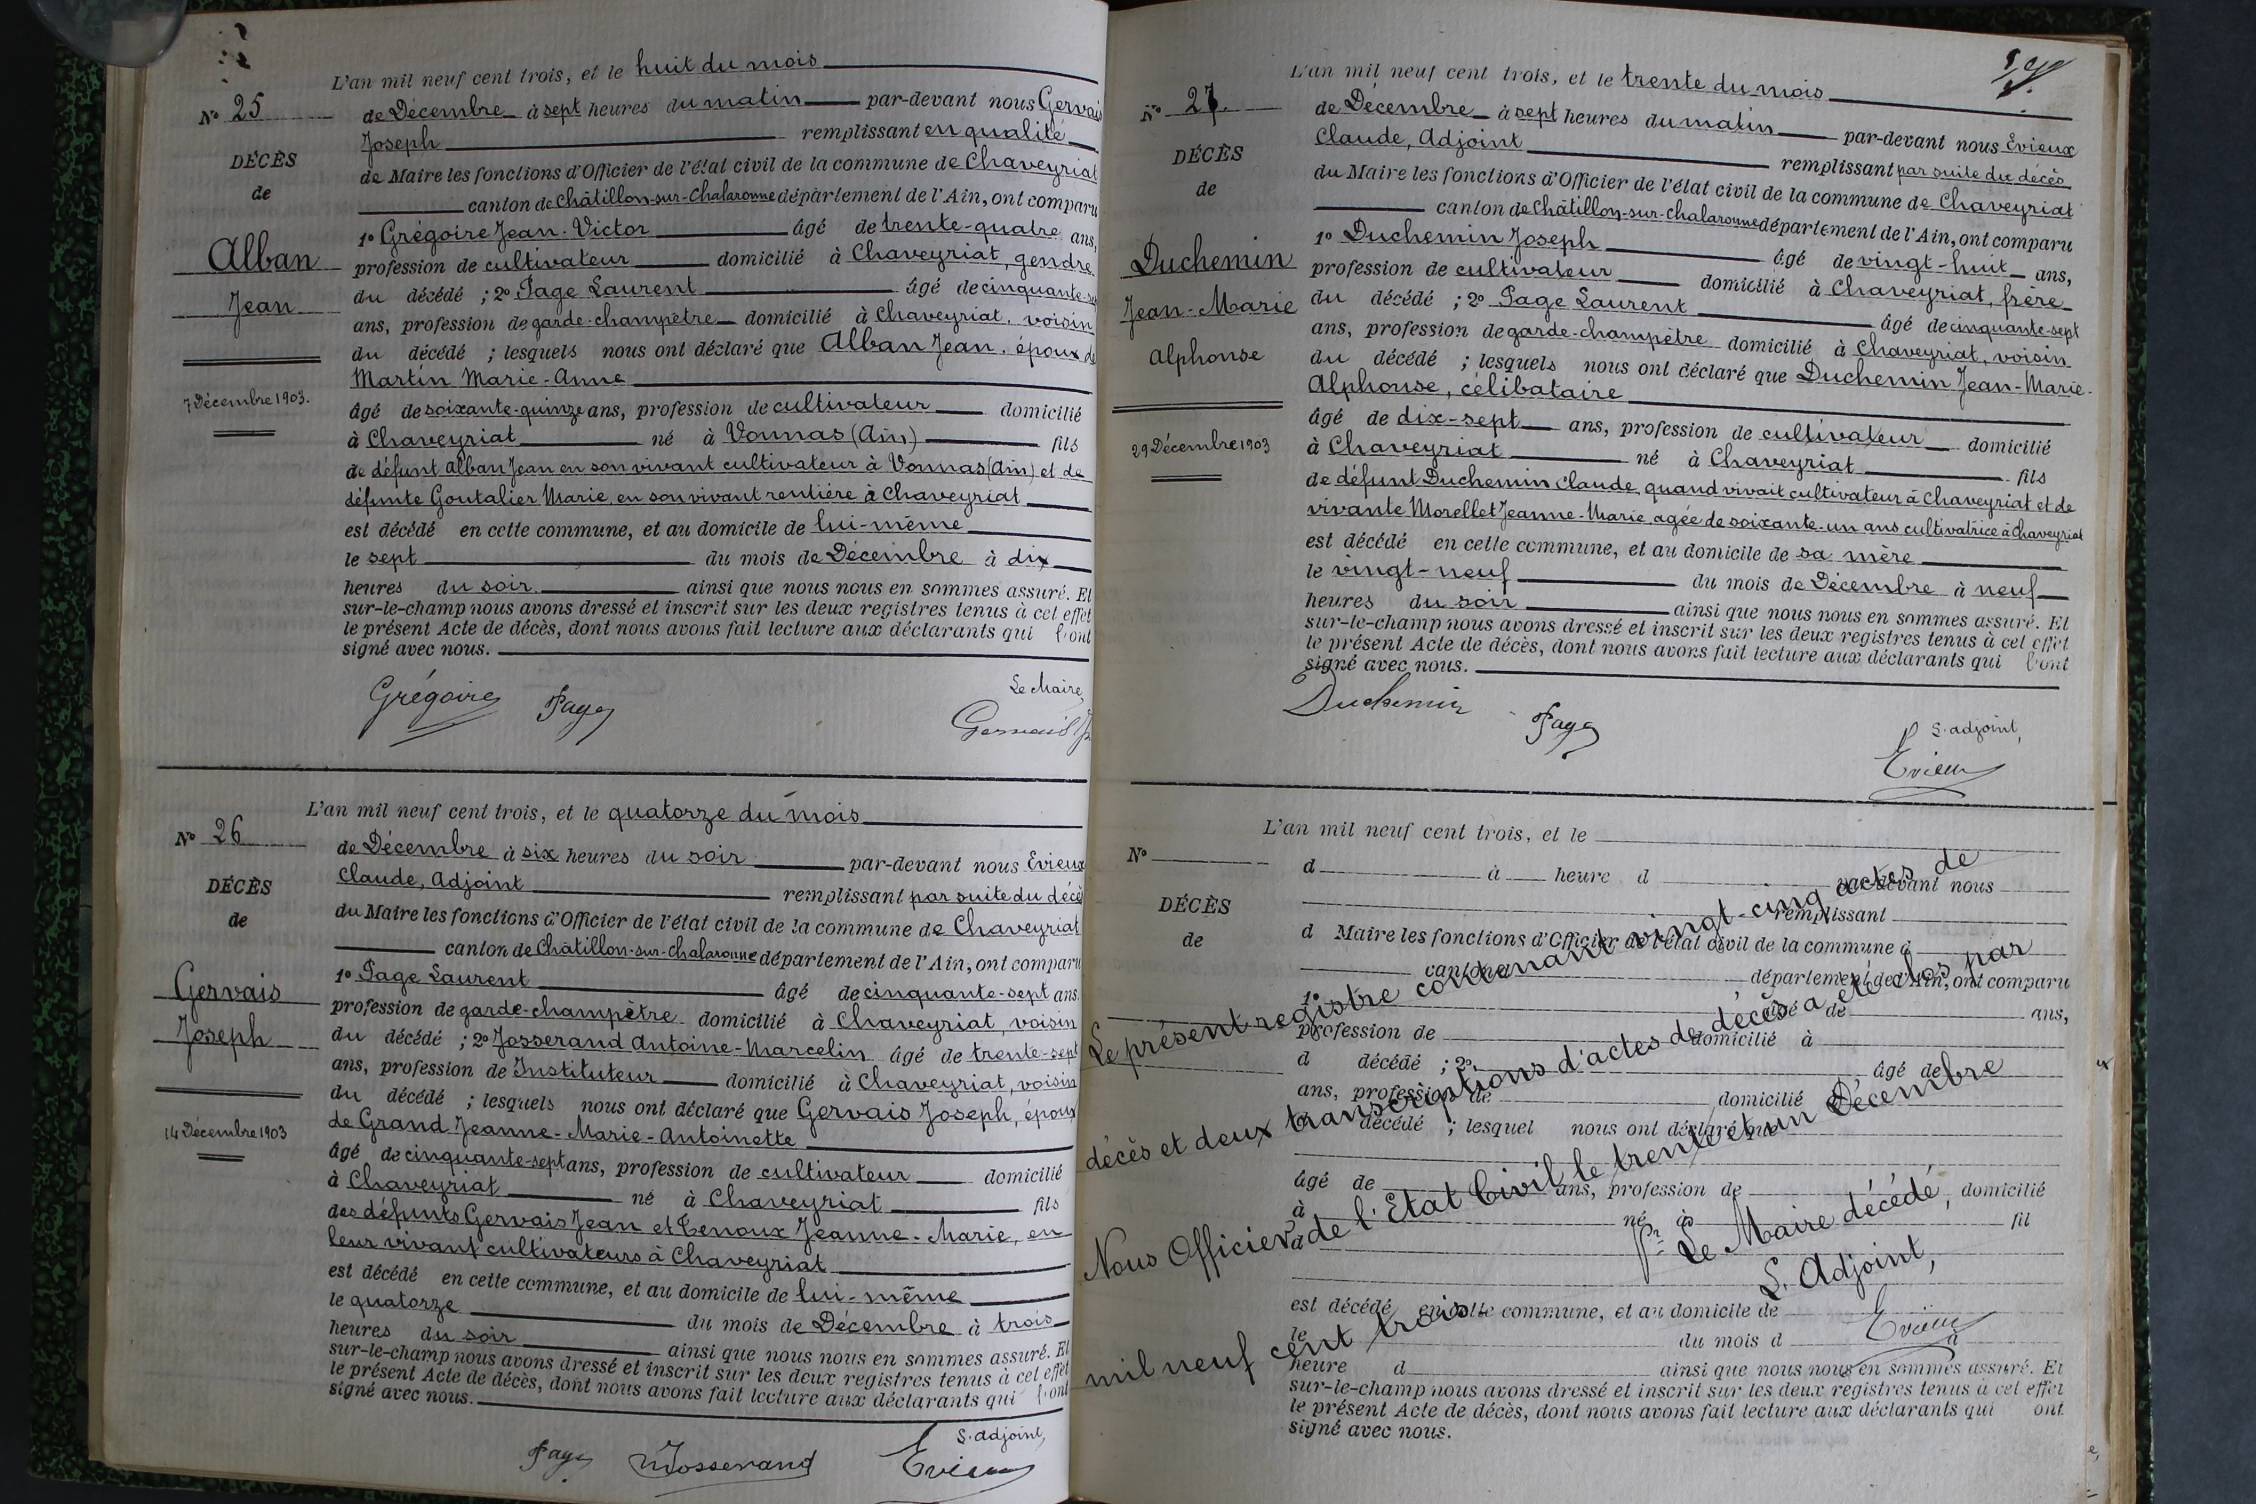 L'an mil neuf cent trois, et le huit du mois
N° 25
de Décembre à sept heures du matin par-devant nous Gervais
Joseph remplissant en qualité
DÉCÈS
de Maire les fonctions d'Officier de l'état civil de la commune de Chaveyriat
de
canton de Châtillon-sur-Chalaronne département de l'Ain, ont comparu
1° Grégoire Jean-Victor âgé de trente-quatre ans,
Alban
profession de cultivateur domicilié à Chaveyriat, gendre
Jean
du décédé ; 2° Page Laurent âgé de cinquante-sept
ans, profession de garde-champêtre domicilié à Chaveyriat, voisin
du décédé ; lesquels nous ont déclaré que Alban Jean, époux de
Martin Marie-Anne
7 Décembre 1903.
âgé de soixante-quinze ans, profession de cultivateur domicilié
à Chaveyriat né à Vonnas (Ain) fils
de défunt Alban Jean en son vivant cultivateur à Vonnas (Ain) et de
défunte Goutalier Marie, en son vivant rentière à Chaveyriat
est décédé en cette commune, et au domicile de lui-même
le sept du mois de Décembre à dix
heures du soir ainsi que nous nous en sommes assuré. Et
sur-le-champ nous avons dressé et inscrit sur les deux registres tenus à cet effet
le présent Acte de décès, dont nous avons fait lecture aux déclarants qui l'ont
signé avec nous.
Le Maire,
Grégoire Page Gervais J
L'an mil neuf cent trois, et le quatorze du mois
N° 26
de Décembre à six heures du soir par-devant nous Evieux
Claude, Adjoint remplissant par suite du décès
DÉCÈS
du Maire les fonctions d'Officier de l'état civil de la commune de Chaveyriat
de
canton de Châtillon-sur-Chalaronne département de l'Ain, ont comparu
1° Page Laurent âgé de cinquante-sept ans,
Gervais
profession de garde-champêtre domicilié à Chaveyriat, voisin
Joseph
du décédé ; 2° Josserand Antoine-Marcelin âgé de trente-sept
ans, profession de Instituteur domicilié à Chaveyriat, voisin
du décédé ; lesquels nous ont déclaré que Gervais Joseph, époux
de Grand Jeanne-Marie-Antoinette
14 Décembre 1903
âgé de cinquante-sept ans, profession de cultivateur domicilié
à Chaveyriat né à Chaveyriat fils
des défunts Gervais Jean et Tenoux Jeanne-Marie, en
leur vivant cultivateurs à Chaveyriat
est décédé en cette commune, et au domicile de lui-même
le quatorze du mois de Décembre à trois
heures du soir ainsi que nous nous en sommes assuré. Et
sur-le-champ nous avons dressé et inscrit sur les deux registres tenus à cet effet
le présent Acte de décès, dont nous avons fait lecture aux déclarants qui l'ont
signé avec nous.
L'adjoint,
Page Josserand Evieux
L'an mil neuf cent trois, et le trente du mois
N° 27.
de Décembre à sept heures du matin par-devant nous Evieux
Claude, Adjoint remplissant par suite du décès
DÉCÈS
du Maire les fonctions d'Officier de l'état civil de la commune de Chaveyriat
de
canton de Châtillon-sur-Chalaronne département de l'Ain, ont comparu
1° Duchemin Joseph âgé de vingt-huit ans,
Duchemin
profession de cultivateur domicilié à Chaveyriat, frère
Jean-Marie
du décédé ; 2° Page Laurent âgé de cinquante-sept
ans, profession de garde-champêtre domicilié à Chaveyriat, voisin
Alphonse
du décédé ; lesquels nous ont déclaré que Duchemin Jean-Marie-
Alphonse, célibataire
âgé de dix-sept ans, profession de cultivateur domicilié
29 Décembre 1903
à Chaveyriat né à Chaveyriat fils
de défunt Duchemin Claude, quand vivait cultivateur à Chaveyriat et de
vivante Morellet Jeanne-Marie, agée de soixante-un ans cultivatrice à Chaveyriat
est décédé en cette commune, et au domicile de sa mère
le vingt-neuf du mois de Décembre à neuf
heures du soir ainsi que nous nous en sommes assuré. Et
sur-le-champ nous avons dressé et inscrit sur les deux registres tenus à cet effet
le présent Acte de décès, dont nous avons fait lecture aux déclarants qui l'ont
signé avec nous.
L'adjoint,
Duchemin Page Evieux
L'an mil neuf cent trois, et le
N°
d à heure d par-devant nous
remplissant
DÉCÈS
d Maire les fonctions d'Officier de l'état civil de la commune d
de
canton d département de l'Ain, ont comparu
1° âgé de ans,
profession de domicilié à
d décédé ; 2° âgé de
ans, profession de domicilié à
d décédé ; lesquel nous ont déclaré que
âgé de ans, profession de domicilié
à né à fil
d
est décédé en cette commune, et au domicile de
le du mois d à
heure d ainsi que nous nous en sommes assuré. Et
sur-le-champ nous avons dressé et inscrit sur les deux registres tenus à cet effet
le présent Acte de décès, dont nous avons fait lecture aux déclarants qui ont
signé avec nous.
Le présent registre contenant vingt-cinq actes de
décès et deux transcriptions d'actes de décès a été clos par
Nous Officier de l'Etat Civil le trente et un Décembre
mil neuf cent trois
Pr Le Maire décédé,
L'Adjoint,
Evieux